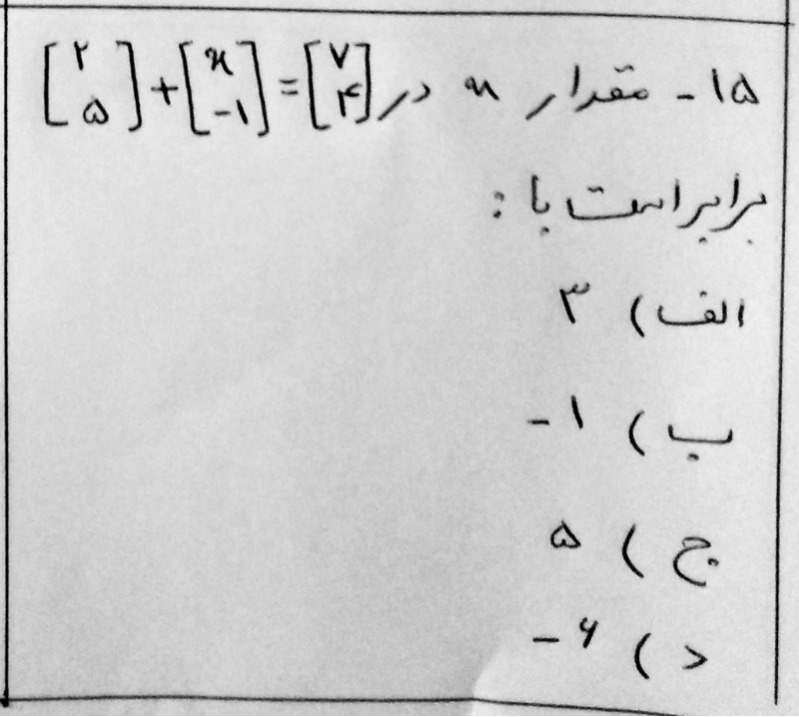 ۱۵- مقدار x در [۲ ۵] + [x -۱] = [۷ ۴]
برابر است با :
الف) ۳
ب) -۱
ج) ۵
د) -۶